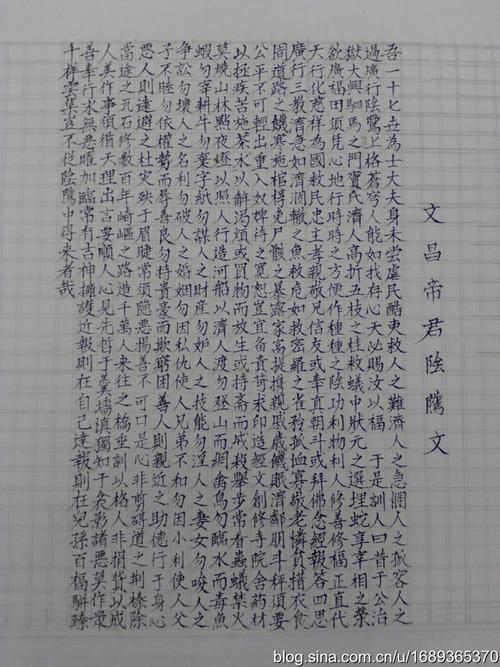 文昌帝君陰騭文
吾一十七世為士大夫身未嘗虐民酷吏救人之難濟人之急憫人之孤容人之
過廣行陰騭上格蒼穹人能如我存心天必賜汝以福　于是訓人曰昔于公治
獄大興駟馬之門竇氏濟人高折五枝之桂救蟻中狀元之選埋蛇享宰相之榮
欲廣福田須凭心地行時時之方便作種種之陰功利物利人修善修福正直代
天行化慈祥為國救民忠主孝親敬兄信友或奉真朝斗或拜佛念經報答四恩
廣行三教濟急如濟涸轍之魚救危如救密羅之雀矜孤恤寡敬老憐貧措衣食
周道路之饑寒施棺槨免尸骸之暴露家富提攜親戚歲饑賑濟鄰朋斗秤須要
公平不可輕出重入奴婢待之寬恕豈宜備責苛求印造經文創修寺院舍藥材
以拯疾苦施茶水以解渴煩或買物而放生或持齋而戒殺舉步常看蟲蟻禁火
莫燒山林點夜燈以照人行造河船以濟人渡勿登山而網禽鳥勿臨水而毒魚
蝦勿宰耕牛勿棄字紙勿謀人之財產勿妒人之技能勿淫人之妻女勿唆人之
爭訟勿壞人之名利勿破人之婚姻勿因私仇使人兄弟不和勿因小利使人父
子不睦勿依權勢而辱善良勿恃貴豪而欺窮困善人則親近之助德行于身心
惡人則遠避之杜災殃于眉睫常須隱惡揚善不可口是心非剪碍道之荊榛除
當途之瓦石修數百年崎嶇之路造千萬人來往之橋垂訓以格人非捐貲以成
人美作事須循天理出言要順人心見先哲于羹墻慎獨知于衾影諸惡莫作衆
善奉行永無惡曜加臨常有吉神擁護近報則在自己遠報則在兒孫百福駢臻
千祥雲集豈不從陰騭中得來者哉
blog.sina.com.cn/u/1689365370